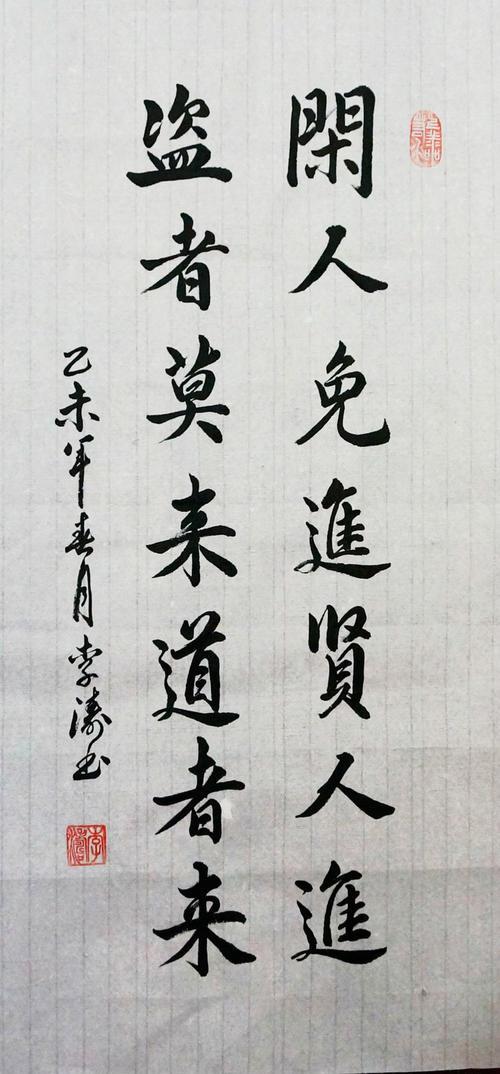 閑人免進賢人進
盗者莫来道者来
乙未年春月李濤书
李濤